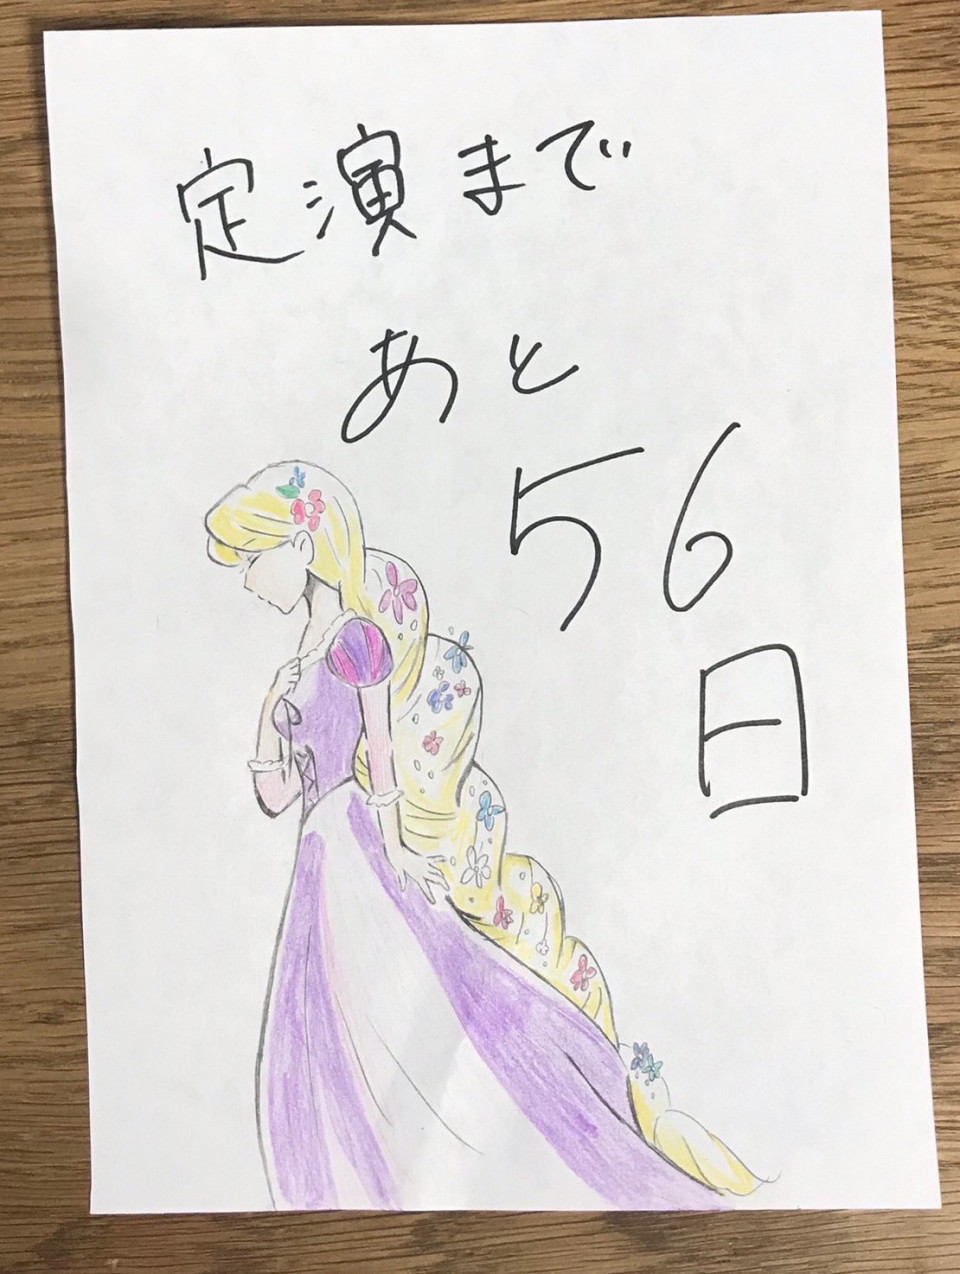 定演まで
あと
56
日